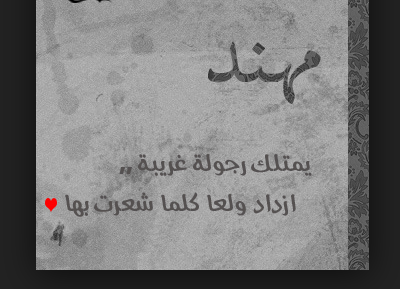 مهند
يمتلك رجولة غريبة ,,
ازداد ولعا كلما شعرت بها ♥